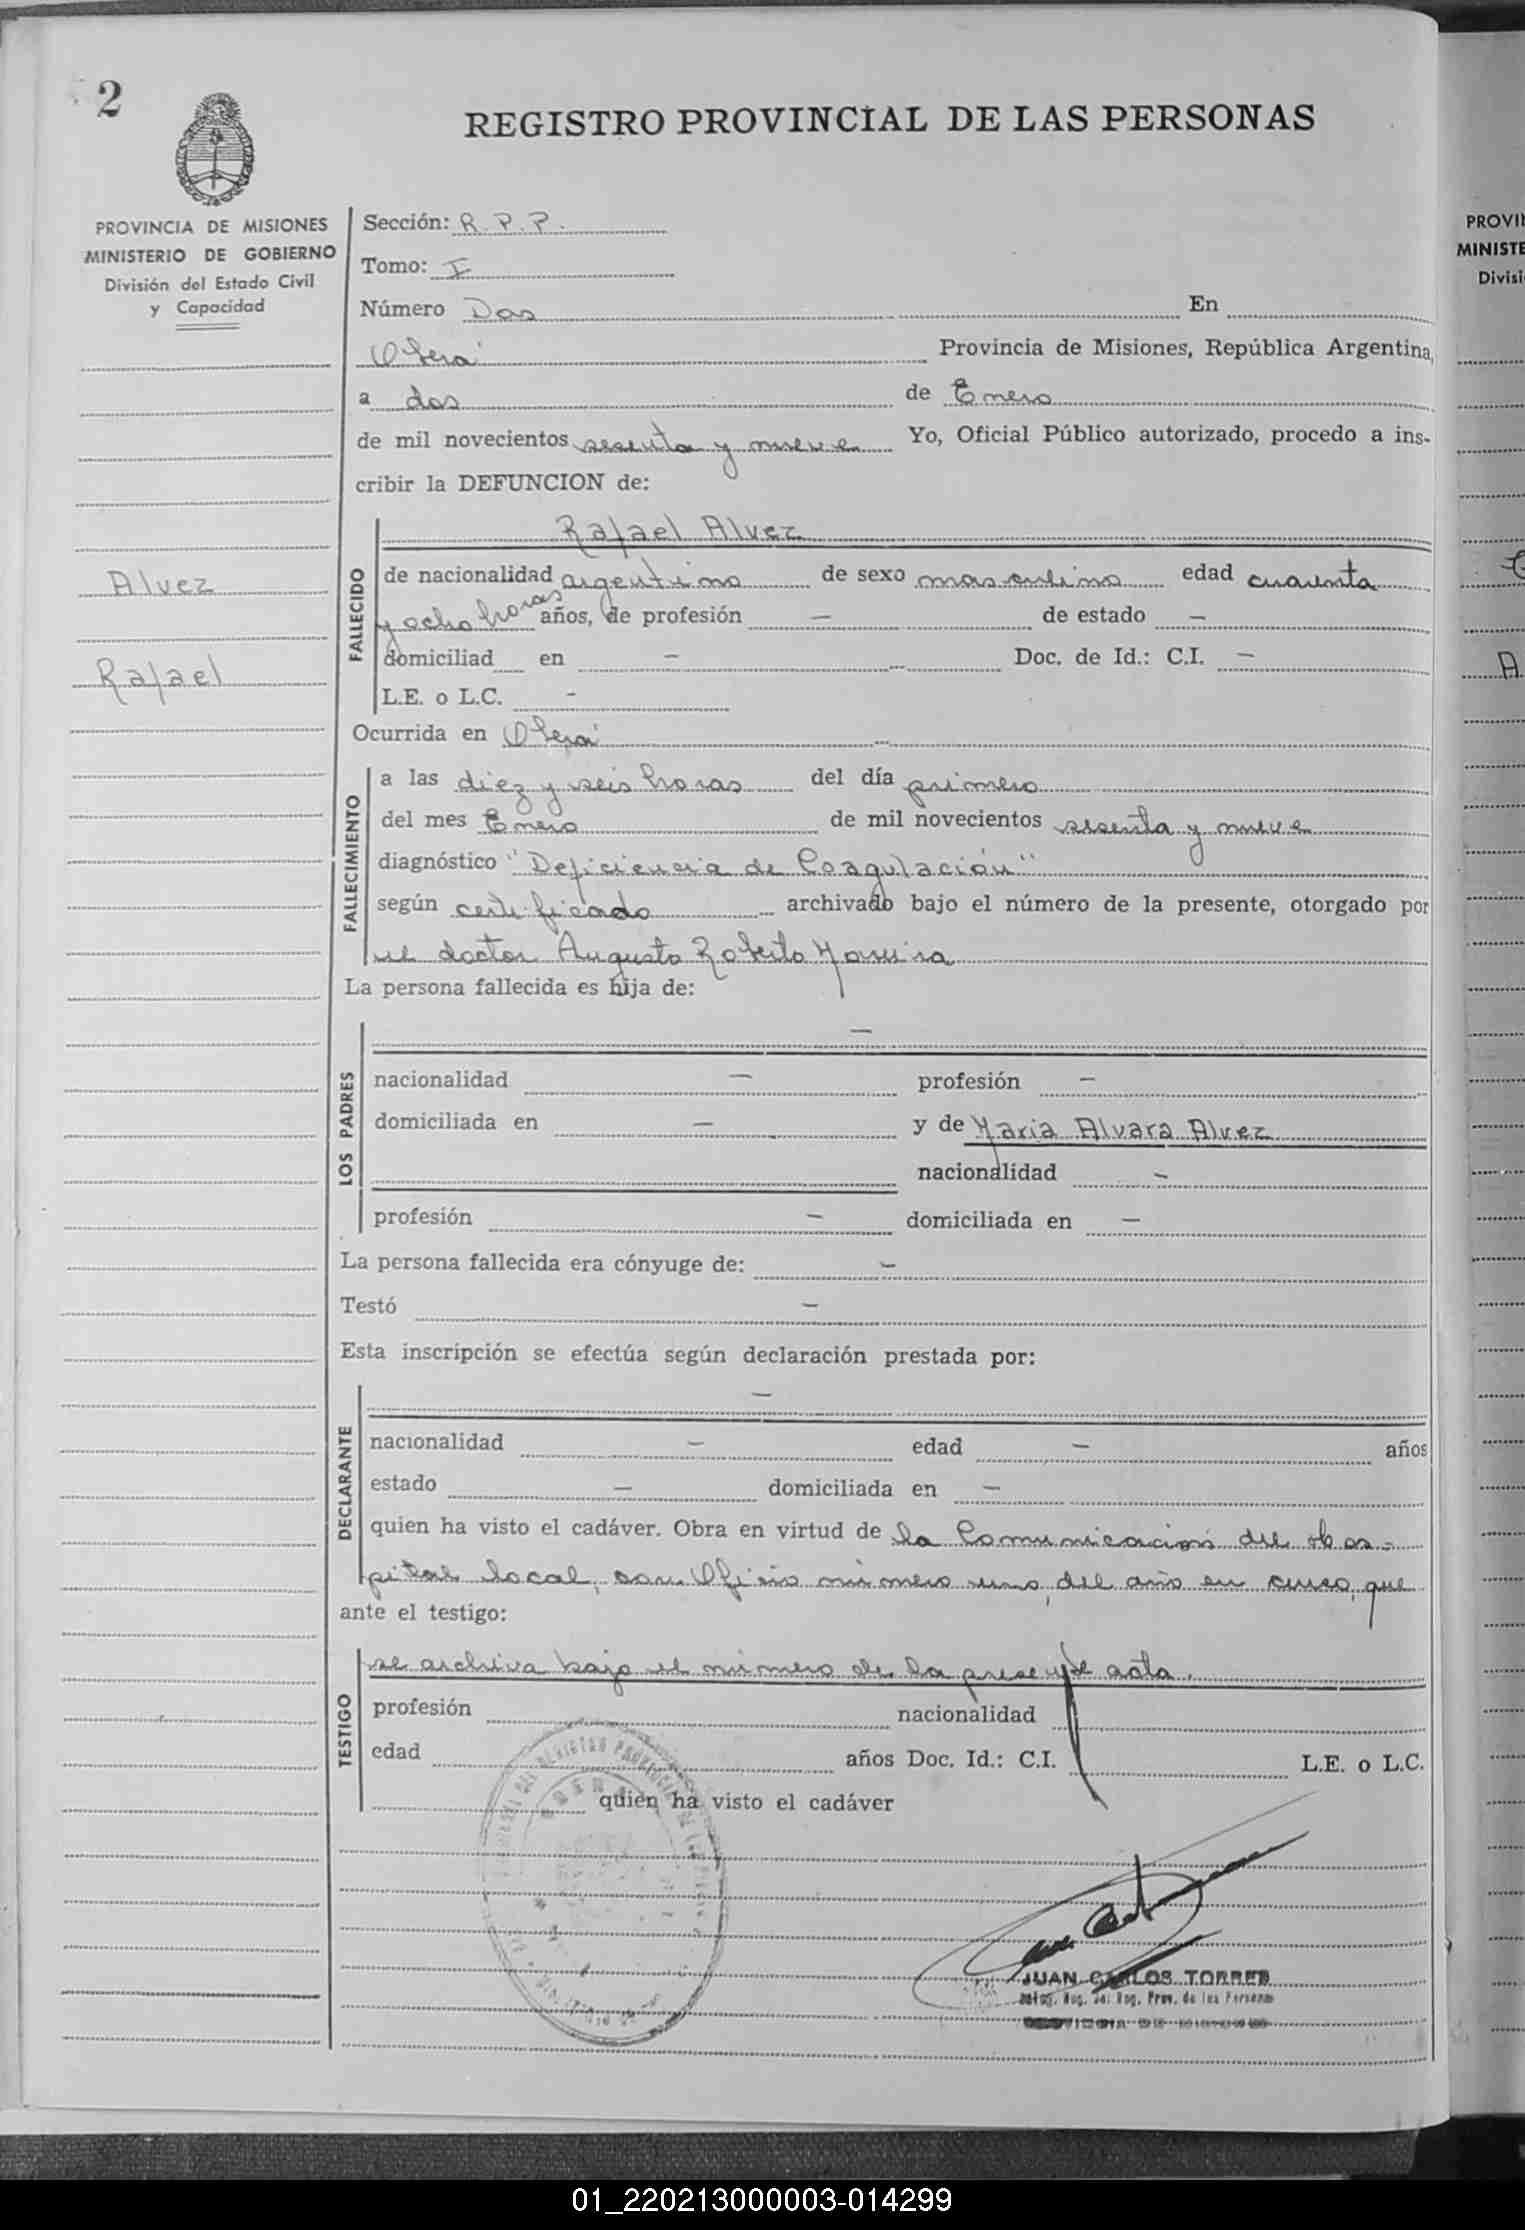 2
REGISTRO PROVINCIAL DE LAS PERSONAS
PROVINCIA DE MISIONES
MINISTERIO DE GOBIERNO
División del Estado Civil
y Capacidad
Alvez
Rafael
Sección: R. P. P.
Tomo: I
Número Dos En
Oberá Provincia de Misiones, República Argentina,
a dos de Enero
de mil novecientos sesenta y nueve Yo, Oficial Público autorizado, procedo a ins-
cribir la DEFUNCION de:
FALLECIDO
Rafael Alvez
de nacionalidad argentino de sexo masculino edad cuarenta
y ocho horas años, de profesión — de estado —
domiciliad en — Doc. de Id.: C.I. —
L.E. o L.C. -
Ocurrida en Oberá
FALLECIMIENTO
a las diez y seis horas del día primero
del mes Enero de mil novecientos sesenta y nueve
diagnóstico "Deficiencia de Coagulación"
según certificado archivado bajo el número de la presente, otorgado por
el doctor Augusto Roberto Moreira
La persona fallecida es hija de:
LOS PADRES
—
nacionalidad — profesión —
domiciliada en — y de Maria Alvara Alvez
nacionalidad —
profesión — domiciliada en —
La persona fallecida era cónyuge de: —
Testó —
Esta inscripción se efectúa según declaración prestada por:
DECLARANTE
—
nacionalidad — edad — años
estado — domiciliada en —
quien ha visto el cadáver. Obra en virtud de la Comunicación del Hos-
pital local, con Oficio número uno, del año en curso, que
ante el testigo:
TESTIGO
se archiva bajo el número de la presente acta.
profesión nacionalidad
edad años Doc. Id.: C.I. L.E. o L.C.
quien ha visto el cadáver
JUAN CARLOS TORRES
Reg. Prov. de las Personas
PROVI
MINISTE
Divisi
A
01_220213000003-014299